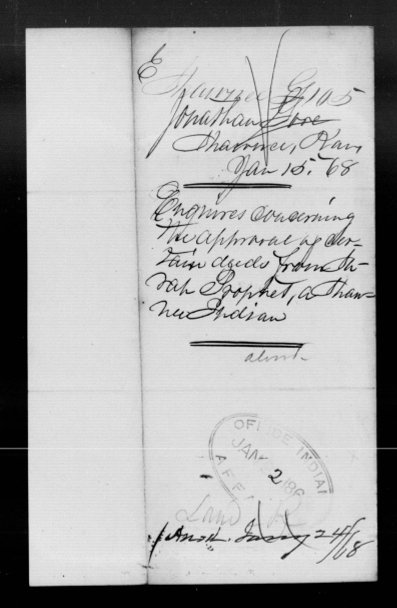 E
Shawnee G 105
Jonathan Gore
Shawnee, Kan,
Jan 15. '68
Enquires concerning
the approval of cer-
tain deeds from Sa-
rah Prophet, a Shaw-
nee Indian
OFFICE INDIAN
JAN 2 186
AFF
Land
Ansd. Jany 24/68